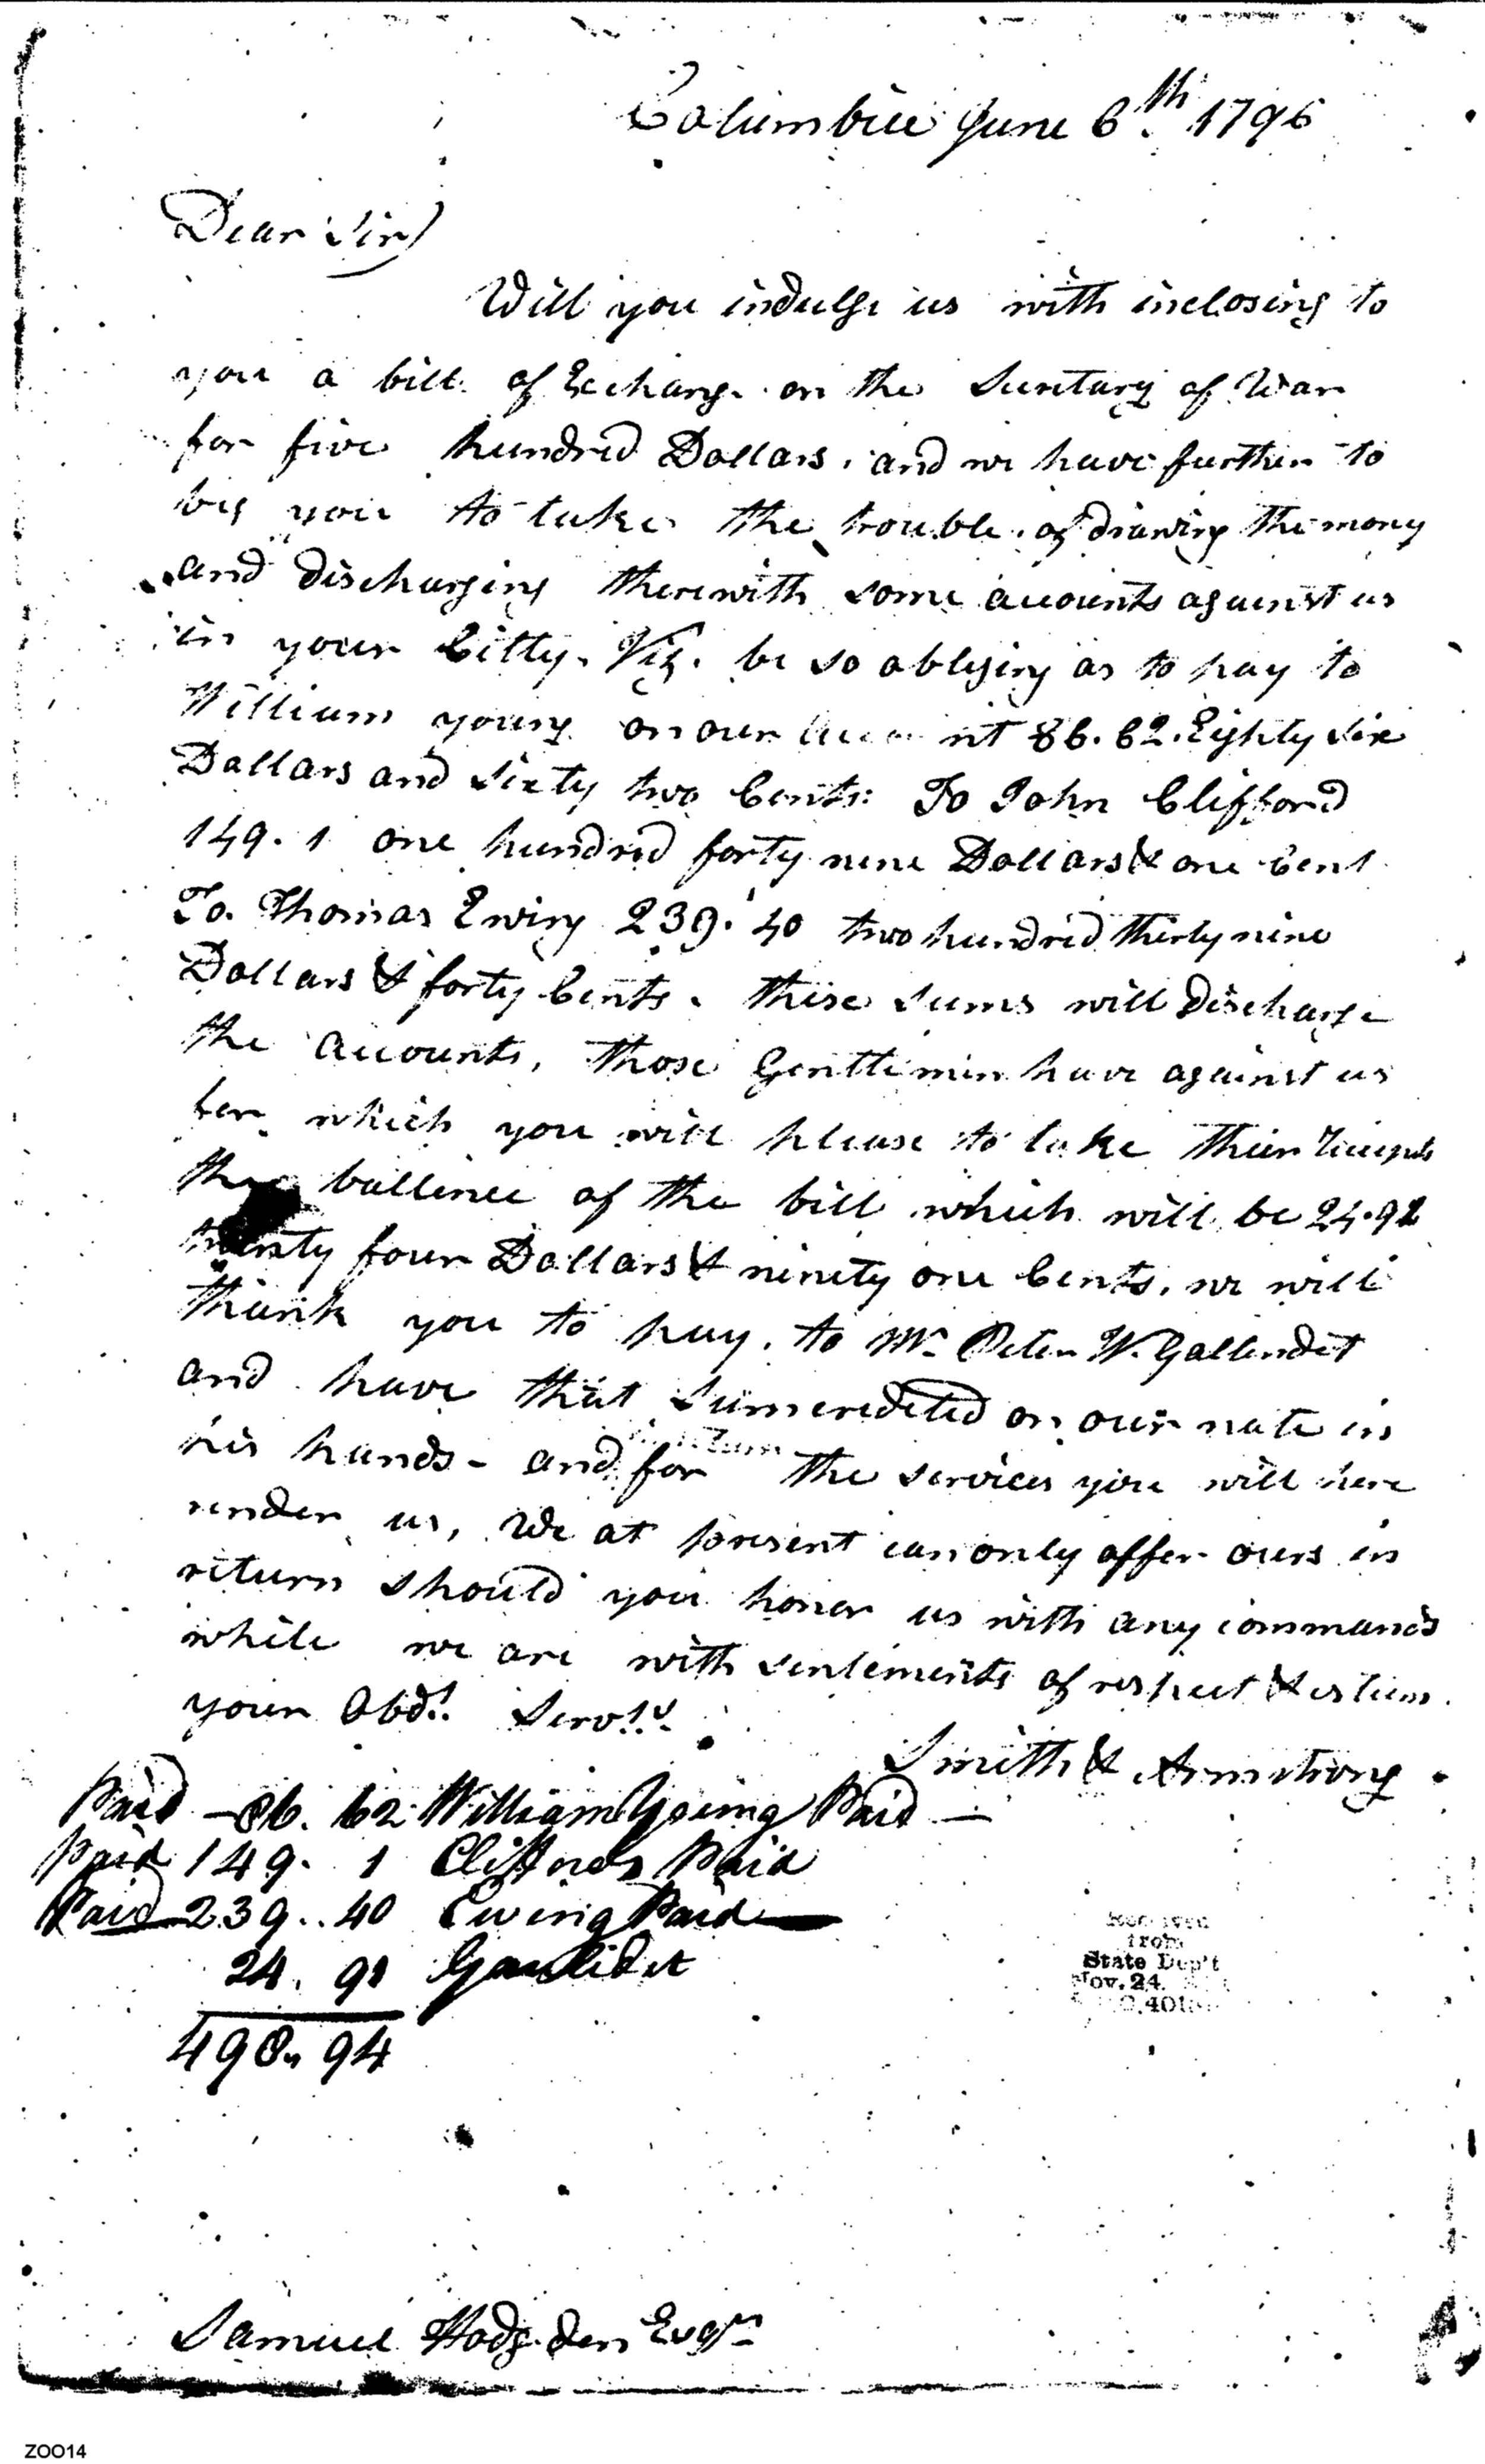 Columbia June 6th. 1796
Dear Sir)
Will you indulge us with inclosing to
you a bill of Exchange on the Secretary of War
for five hundred Dollars, and we have further to
beg you to take the trouble of drawing the mony
and discharging therewith some accounts against us
in your Citty. Viz. be so obliging as to pay to
William young on our account 86.62. Eighty Six
Dollars and Sixty two Cents: To John Clifford
149.1 one hundred forty nine Dollars & one Cent
To. Thomas Ewing 239.40 two hundred thirty nine
Dollars & forty Cents. these Sums will discharge
the accounts, those Gentlemen have against us
for which you will please to take their receipts
the ballence of the bill which will be 24.91
twenty four Dollars & ninety one Cents, we will
thank you to pay, to Mr. Peter W. Gallendet
and have that Sum credited on our note in
his hands - and for the services you will here
render us, We at present can only offer ours in
return should you honor us with any commands
while we are with sentements of respect & esteem.
your Obdt. Servts.
Smith & Armstrong.
Paid - 86. 62 William Young Paid -
paid 149. 1 Cliffords Paid
Paid 239.. 40 Ewing Paid
24. 91 Gaulidet
498. 94
Received
from
State Dep't
Nov. 24
Samuel Hodgden Esqr.
ZOO14